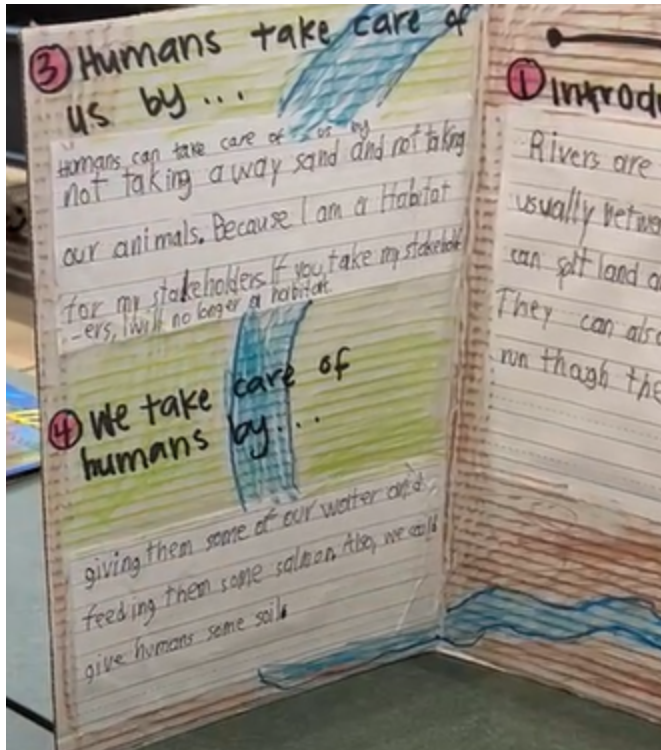 ③ Humans take care of
us by...
Humans can take care of us by
not taking away sand and not taking
our animals. Because I am a Habitat
for my stakeholders. If you take my stakehold
-ers, I will no longer a habitat.
④ We take care of
humans by...
giving them some of our watter and
feeding them some salmon. Also, we could
give humans some soil.
① Introdu
Rivers are
usually betwe
can split land a
They can also
run though the